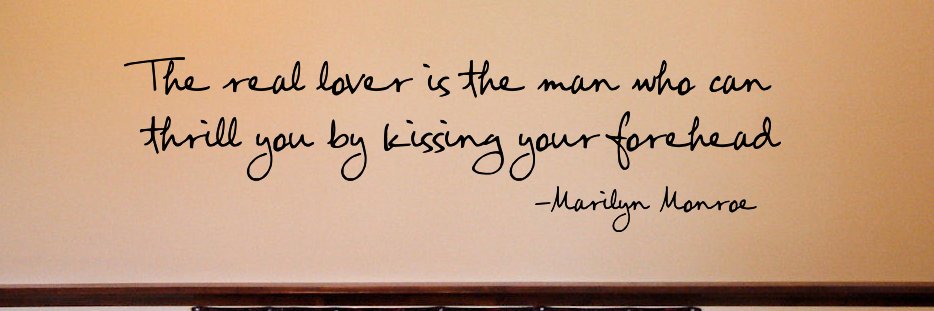 The real lover is the man who can
thrill you by kissing your forehead
-Marilyn Monroe